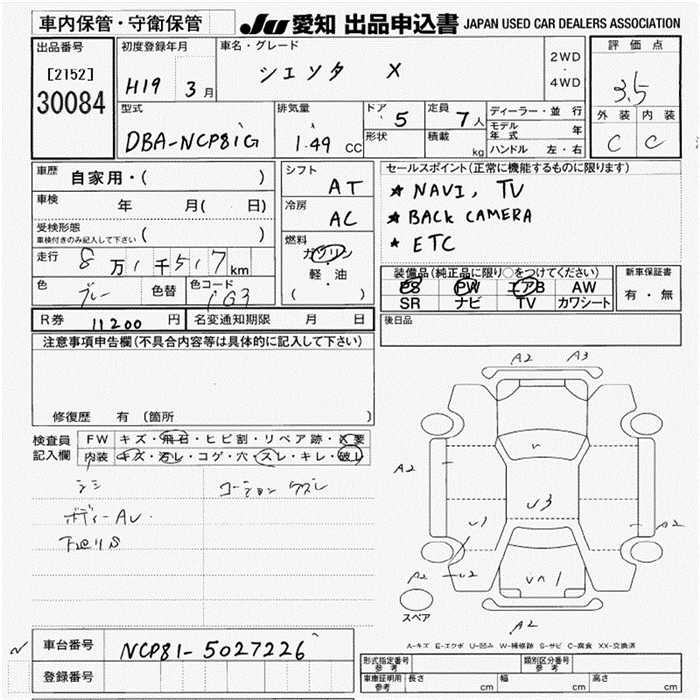 車内保管・守衛保管
JU 愛知 出品申込書 JAPAN USED CAR DEALERS ASSOCIATION
出品番号
[2152]
30084
初度登録年月
H19 3月
車名・グレード
シエンタ X
2WD
・
4WD
評価点
3.5
外装 内装
C C
型式
DBA-NCP81G
排気量
1.49 CC
ドア
5
形状
定員
7人
積載
kg
ディーラー・並行
モデル年式 年
ハンドル 左・右
車歴
自家用・( )
車検
年 月( 日)
受検形態
車検付きのみ記入して下さい ( )
走行
8万1千517km
色
グレー
色替
色コード
1G3
シフト
AT
冷房
AC
燃料
ガソリン
軽・油
( )
セールスポイント(正常に機能するものに限ります)
★ NAVI, TV
★ BACK CAMERA
★ ETC
装備品(純正品に限り○をつけてください)
PS PW エアB AW
SR ナビ TV カワシート
新車保証書
有・無
R券 11200円
名変通知期限 月 日
後日品
注意事項申告欄(不具合内容等は具体的に記入して下さい)
修復歴 有 (箇所 )
検査員
記入欄
FW キズ・飛石・ヒビ割・リペア跡・✕要
内装 キズ・汚レ・コゲ・穴・スレ・キレ・破レ
ボディーAU
A2 A3
A2
U3
U1
A2
A2 U2
A2
スペア
A-キズ E-エクボ U-凹み W-補修跡 S-サビ C-腐食 XX-交換済
車台番号
NCP81-5027226
登録番号
形式指定番号
参考
類別区分番号
参考
車庫証明用
参考
長さ cm 幅 cm 高さ cm